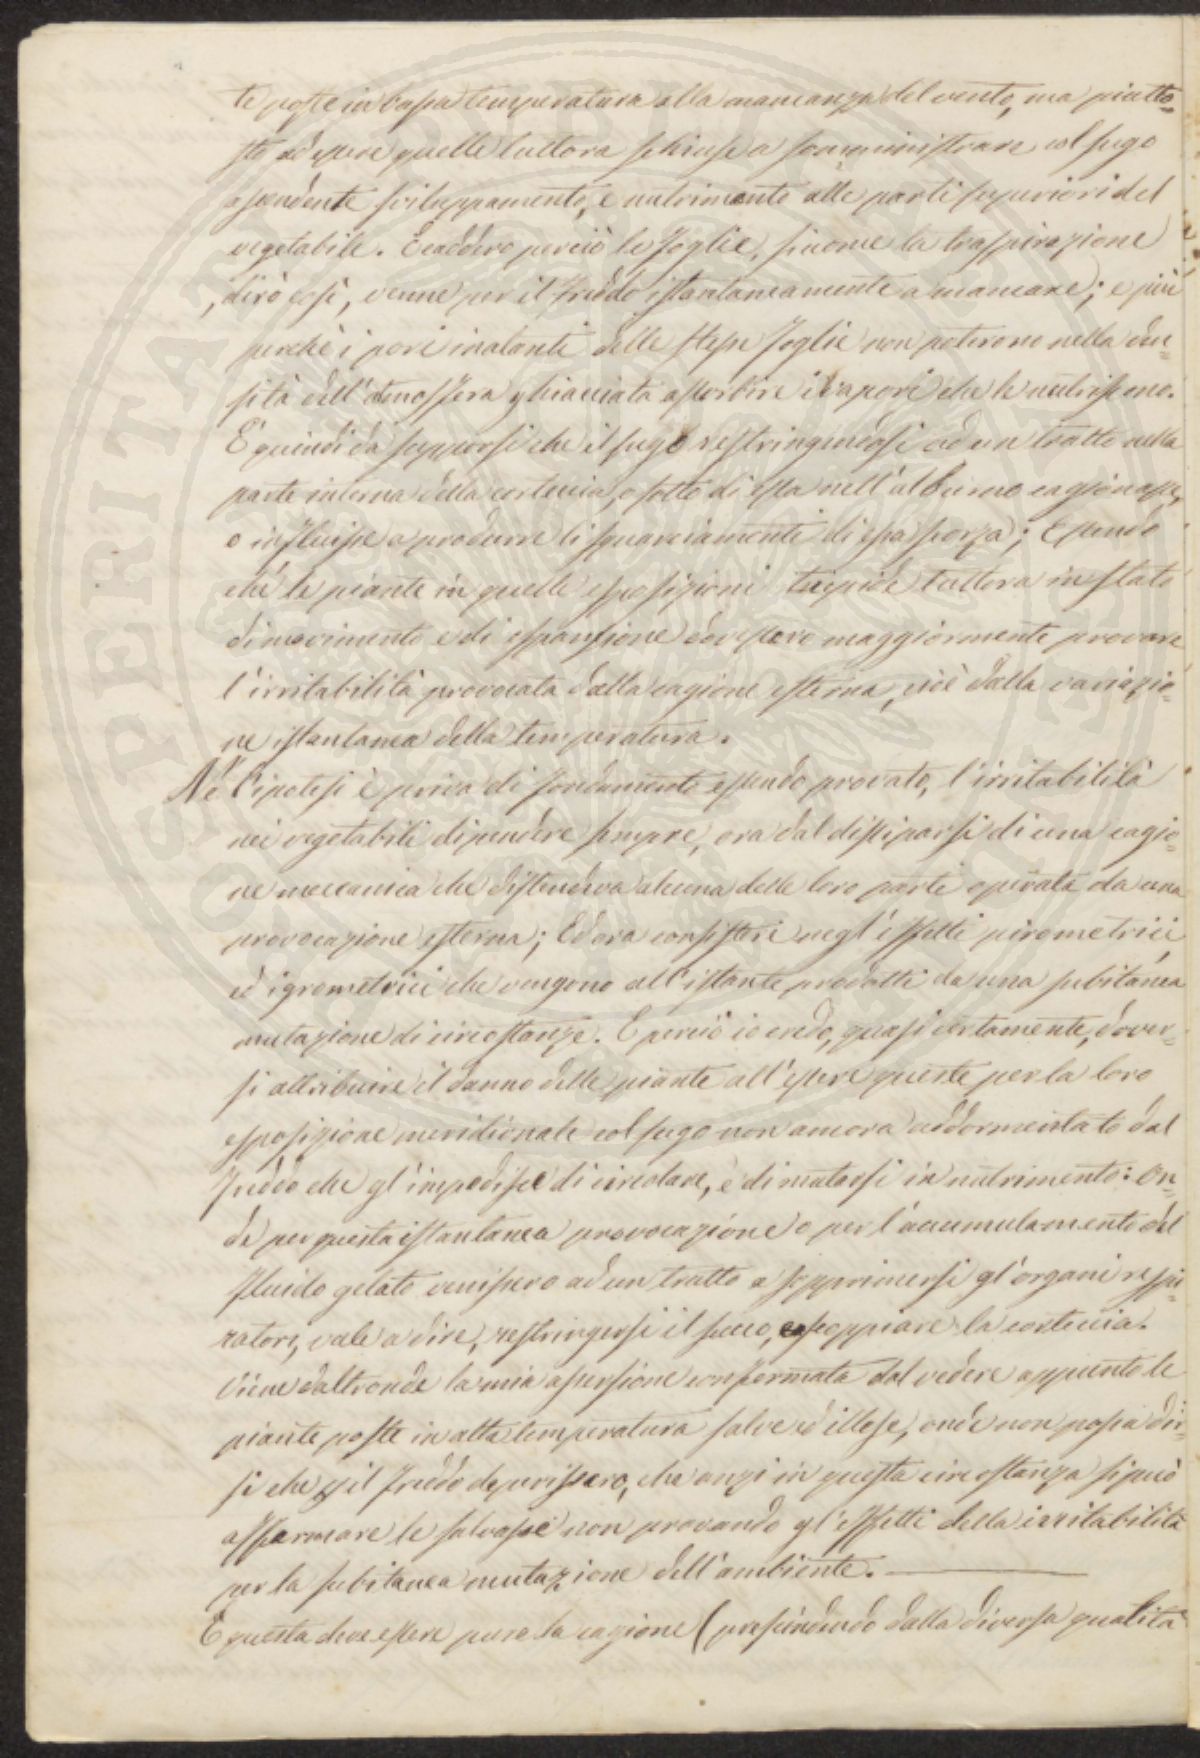 te poste in bassa temperatura alla mancanza del vento, ma piutto-
sto ad essere quelle tuttora schiuse a somministrare col sugo
ascendente sviluppamento, e nutrimento alle parti superiori del
vegetabile. Caddero perciò le foglie, siccome la traspirazione
, dirò così, venne per il freddo istantaneamente a mancare; e più
perchè i pori inalanti delle stesse foglie non poterono nella den-
sità dell'atmosfera ghiacciata assorbire i vapori che le nutriscono.
È quindi da supporsi che il sugo restringendosi ad un tratto nella
parte interna della corteccia, o sotto di essa nell'alburno cagionasse,
o influisse a produrre li squarciamenti di essa scorza; Essendo
chè le piante in quelle esposizioni tiepide tuttora in stato
di movimento e di espansione dovessero maggiormente provare
l'irritabilità provocata dalla cagione esterna, cioè dalla variazio-
ne istantanea della temperatura.
Nè l'ipotesi è priva di fondamento essendo provato, l'irritabilità
nei vegetabili dipendere sempre, ora dal dissiparsi di una cagio-
ne meccanica che distendeva alcuna delle loro parti operata da una
provocazione esterna; Ed ora consistere negl'effetti pirometrici
ed igrometrici che vengono all'istante prodotti da una subitanea
mutazione di circostanze. E perciò io credo, quasi certamente, dover-
si attribuire il danno delle piante all'essere queste per la loro
esposizione meridionale col sugo non ancora addormentato dal
freddo che gl'impedisce di circolare, e di mutarsi in nutrimento: On-
de per questa istantanea provocazione o per l'accumulamento del
fluido gelato venissero ad un tratto a sopprimersi gl'organi respi-
ratori, vale a dire, restringersi il succo, e scoppiare la corteccia.
Viene d'altronde la mia assersione confermata dal vedere appunto le
piante poste in alta temperatura salve ed illese, onde non possa dir-
si che pel freddo deperissero, che anzi in questa circostanza si può
affermare le salvasse non provando gl'effetti della irritabilità
per la subitanea mutazione dell'ambiente.
E questa deve essere pure la cagione (prescindendo dalla diversa qualità
SOSPERITATI PUBLICAE